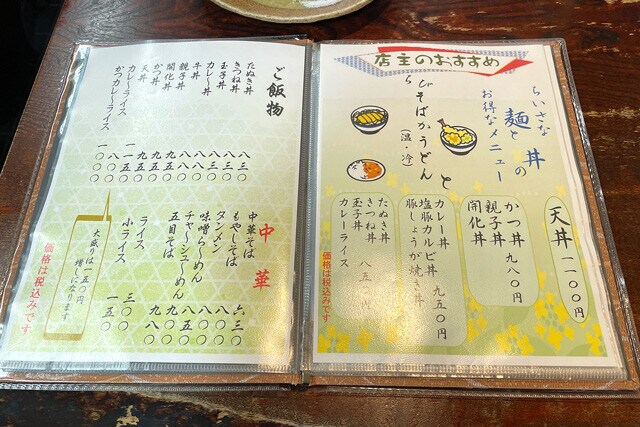 店主のおすすめ
ちいさな丼
麺との
お得なメニュー
そばかうどんと
(温・冷)
天丼 一一〇〇円
かつ丼
親子丼 九八〇円
開化丼
カレー丼
塩豚カルビ丼 九五〇円
豚しょうが焼き丼
たぬき丼
きつね丼
玉子丼 八五〇円
カレーライス
価格は税込みです
ご飯物
たぬき丼 八三〇
きつね丼 八三〇
玉子丼
カレー丼
牛丼
親子丼
開化丼
かつ丼
天丼
カレーライス
かつカレーライス
中華
中華そば 六三〇
もやしそば
タンメン
味噌らーめん
チャーシューめん
五目そば 九八〇
ライス 三〇〇
小ライス 一五〇
大盛りは一五〇円
増しになります
価格は税込みです